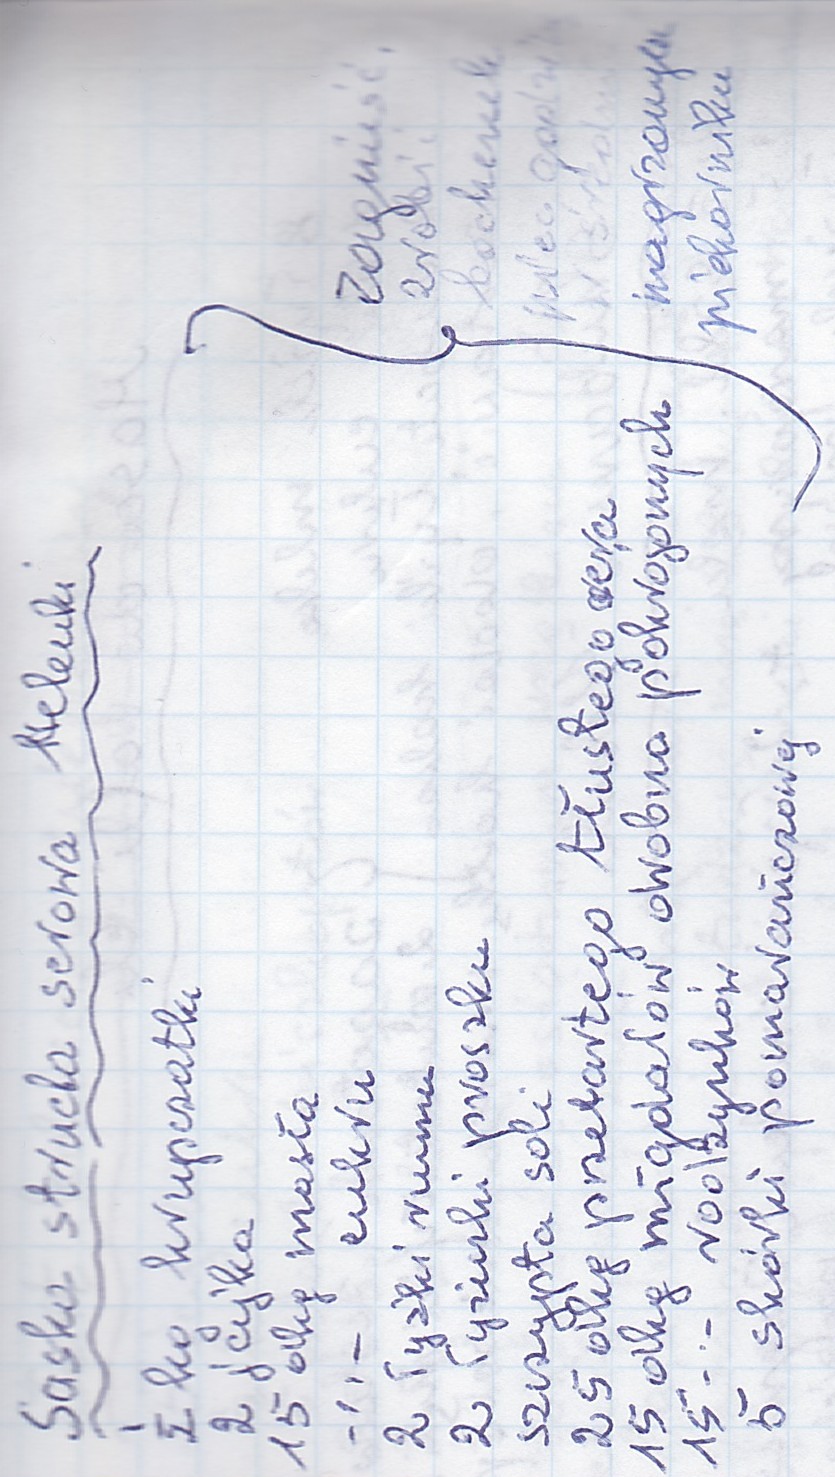 Saska strucla serowa Helenki
1/2 kg krupczatki
2 jajka
15 dkg masła
-"- cukru
2 łyżki rumu
2 łyżeczki proszku
szczypta soli
25 dkg przetartego tłustego sera
15 dkg migdałów drobno pokrojonych
15 -"- rodzynków
5 skórki pomarańczowej
zagnieść,
zrobić
bochenek
piec godzin
w średni
nagrzanym
piekarniku